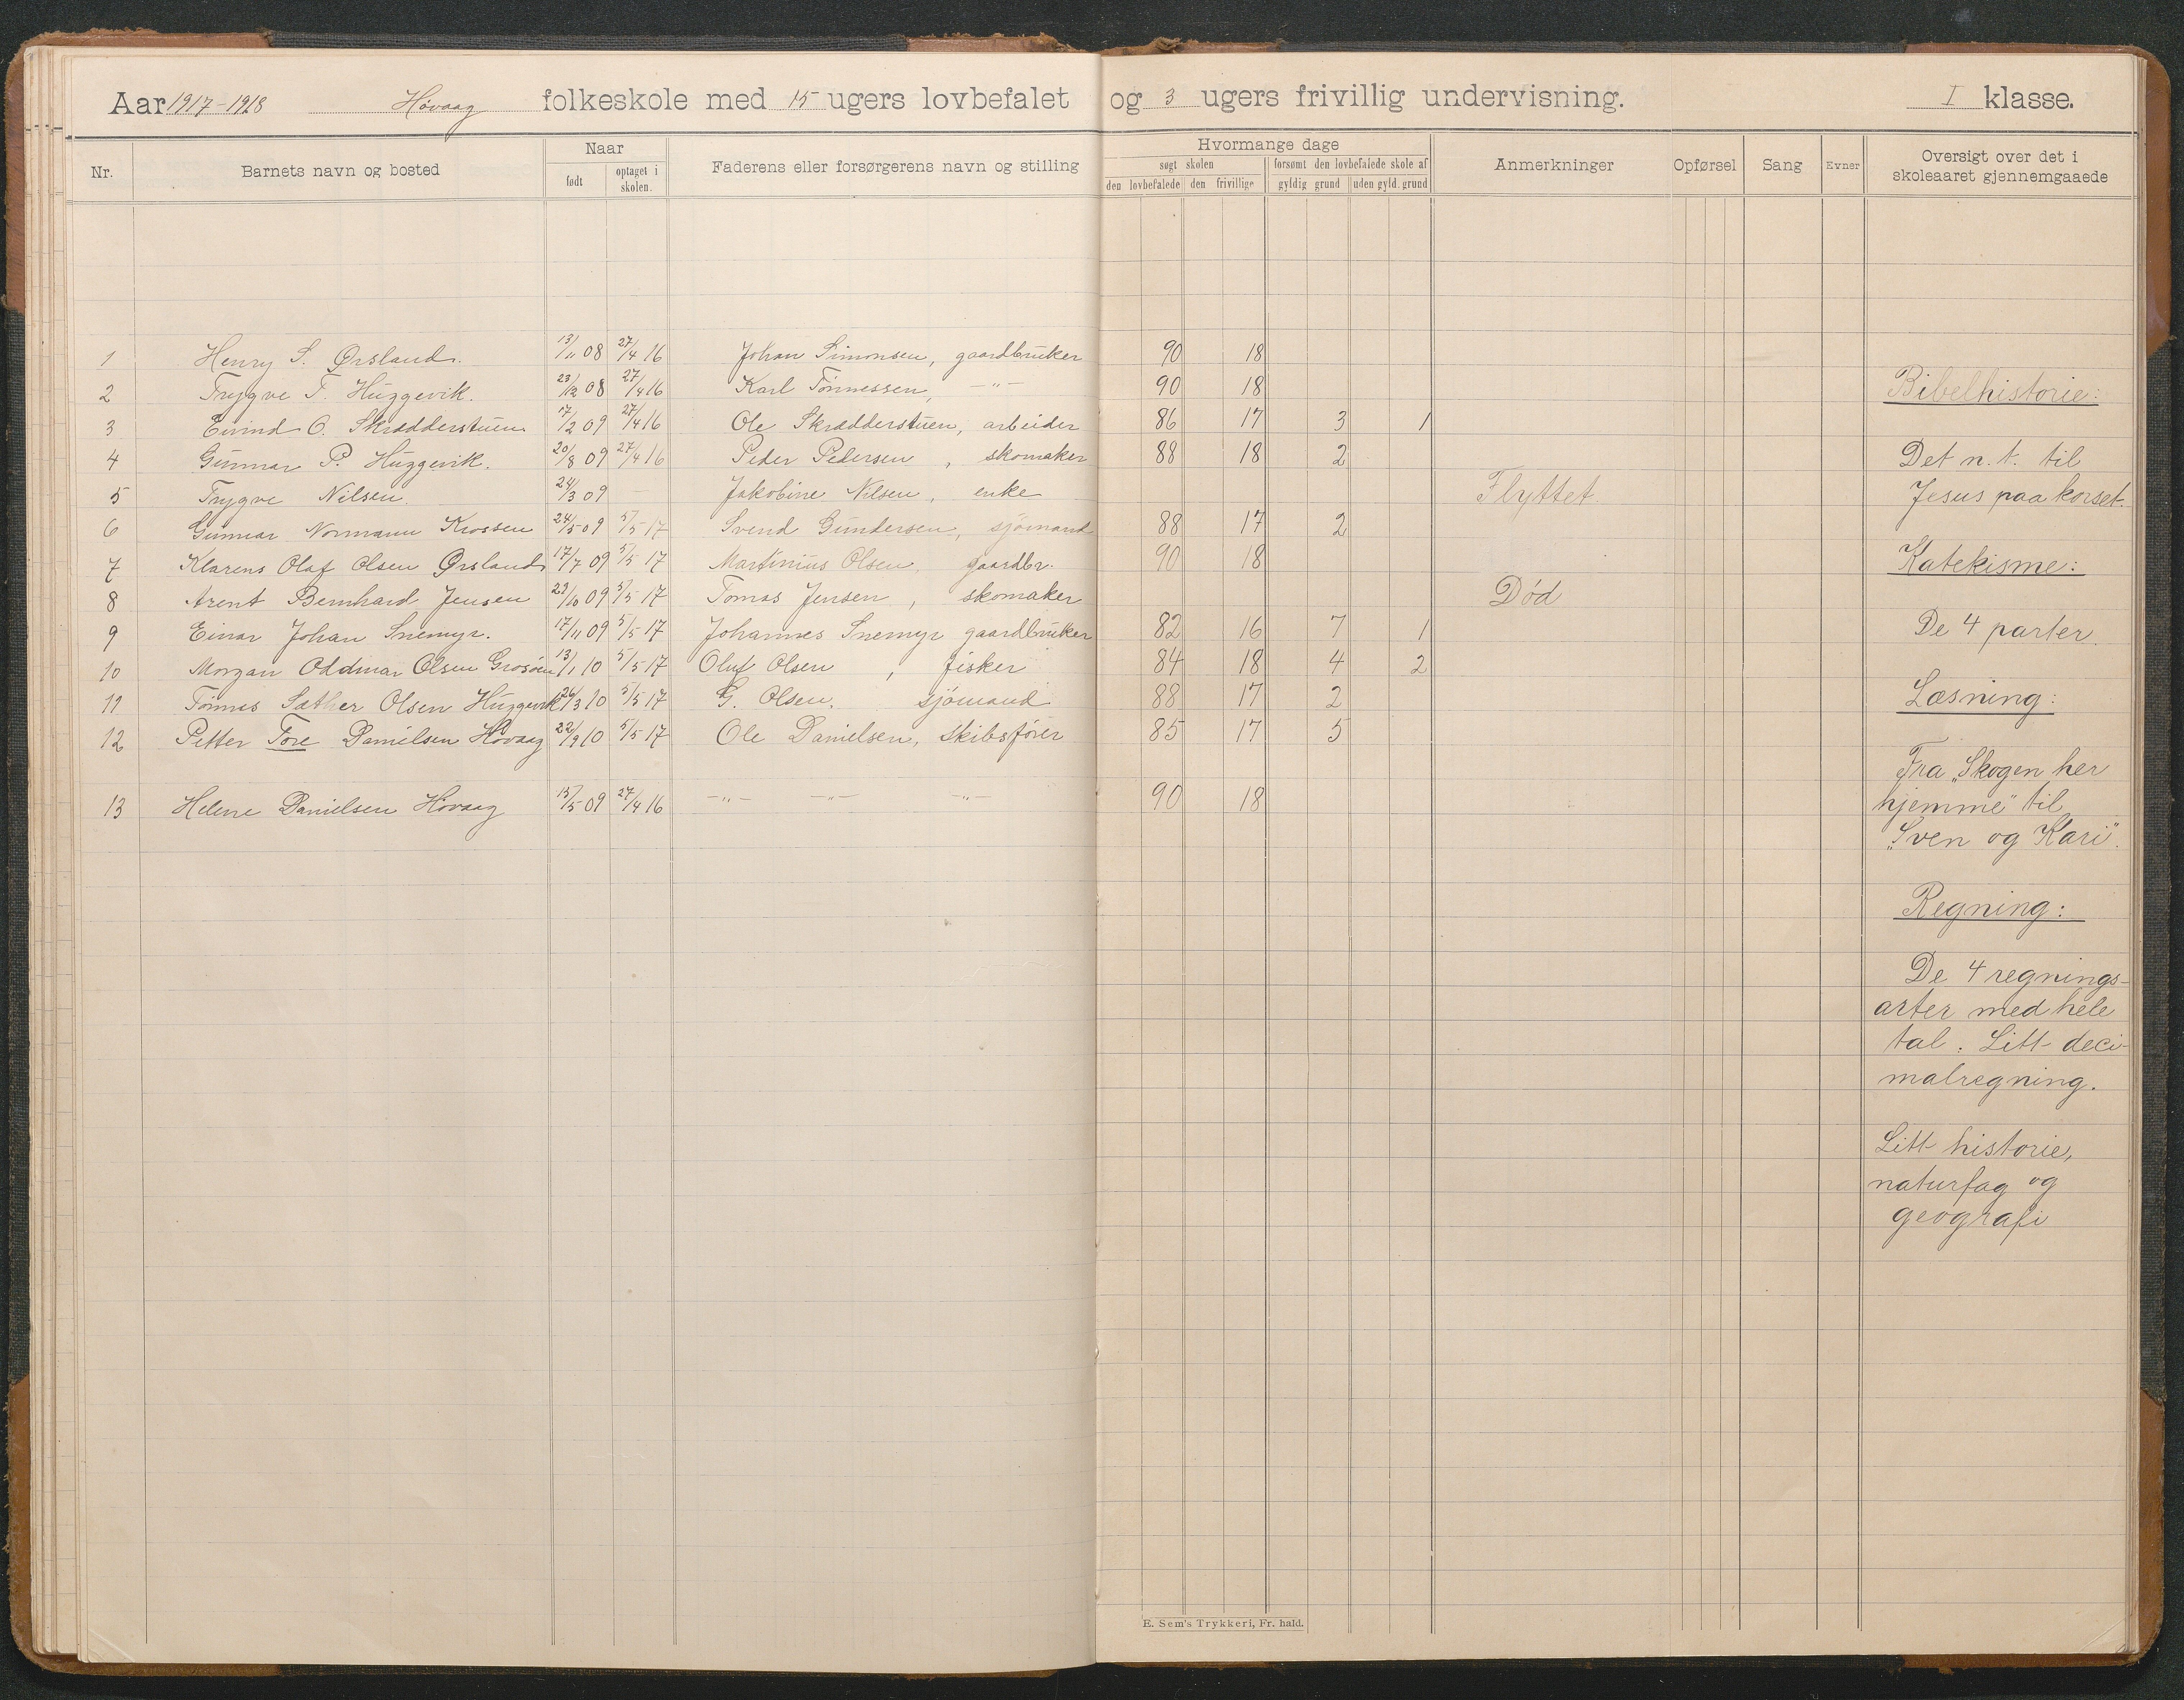 Aar 1917-1918 Høvaag folkeskole med 15 ugers lovbefalet og 3 ugers frivillig undervisning. I klasse.
Nr. Barnets navn og bosted Naar født optaget i skolen. Faderens eller forsørgerens navn og stilling Hvormange dage søgt skolen den lovbefalede den frivillige forsømt den lovbefalede skole af gyldig grund uden gyld. grund Anmerkninger Opførsel Sang Evner Oversigt over det i skoleaaret gjennemgaaede
1 Henry S. Ørsland. 13/11 08 27/4 16 Johan Simonsen, gaardbruker 90 18
2 Trygve T. Huggevik. 23/12 08 27/4 16 Karl Tönnessen, -"- 90 18
3 Eivind O. Skrædderstuen 17/2 09 27/4 16 Ole Skrædderstuen, arbeider 86 17 3 1
4 Gunnar P. Huggevik. 20/8 09 27/4 16 Peder Pedersen, skomaker 88 18 2
5 Trygve Nilsen 24/3 09 Jakobine Nilsen, enke Flyttet.
6 Gunnar Normann Krossen 24/5 09 5/5 17 Svend Gundersen, sjömand 88 17 2
7 Klarens Olaf Olsen Ørsland 17/7 09 5/5 17 Martinius Olsen, gaardbr. 90 18
8 Arent Bernhard Jensen 22/10 09 5/5 17 Tomas Jensen, skomaker Død
9 Einar Johan Snemyr. 17/11 09 5/5 17 Johannes Snemyr gaardbruker 82 16 7 1
10 Morgan Oddmar Olsen Grosöen 13/1 10 5/5 17 Oluf Olsen, fisker 84 18 4 2
11 Tönnes Sæther Olsen Huggevik 26/3 10 5/5 17 G. Olsen, sjömand 88 17 2
12 Petter Tore Danielsen Hövaag 22/9 10 5/5 17 Ole Danielsen, skibsförer 85 17 5
13 Helene Danielsen Hövaag 15/5 09 27/4 16 -"- -"- -"- 90 18
Bibelhistorie:
Det n. t. til
Jesus paa korset.
Katekisme:
De 4 parter.
Læsning:
Fra „Skogen her
hjemme" til
„Sven og Kari".
Regning:
De 4 regnings-
arter med hele
tal. Litt deci-
malregning.
Litt historie,
naturfag og
geografi
E. Sem's Trykkeri, Fr. hald.